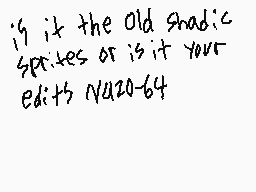 is it the old shadic
sprites or is it your
edits N420-64